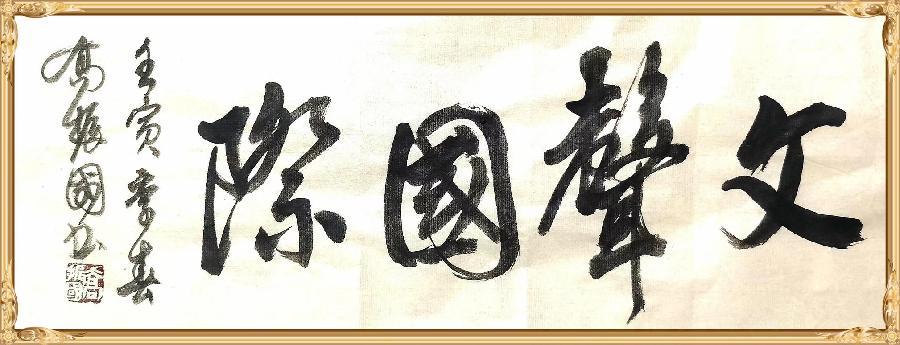 文聲國際
壬寅季春
高振國书